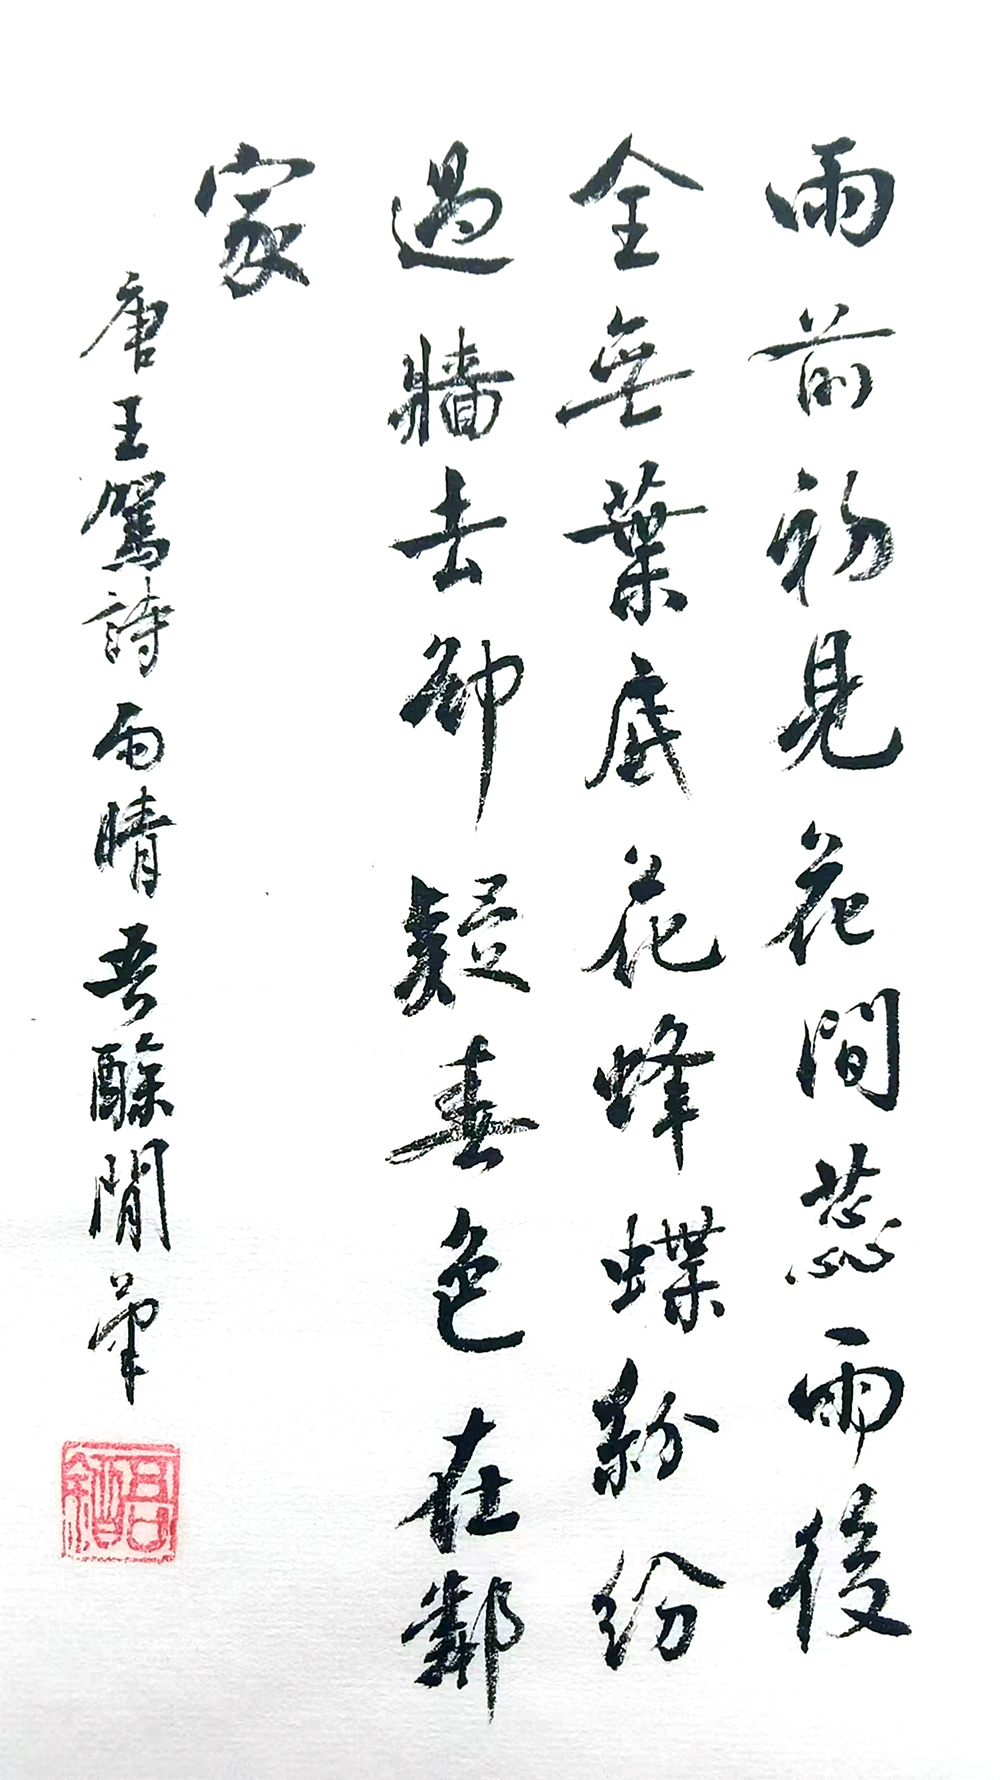 雨前初見花間蕊雨後
全無葉底花蜂蝶紛紛
過牆去卻疑春色在鄰
家
唐王駕詩雨晴吾醿閒筆